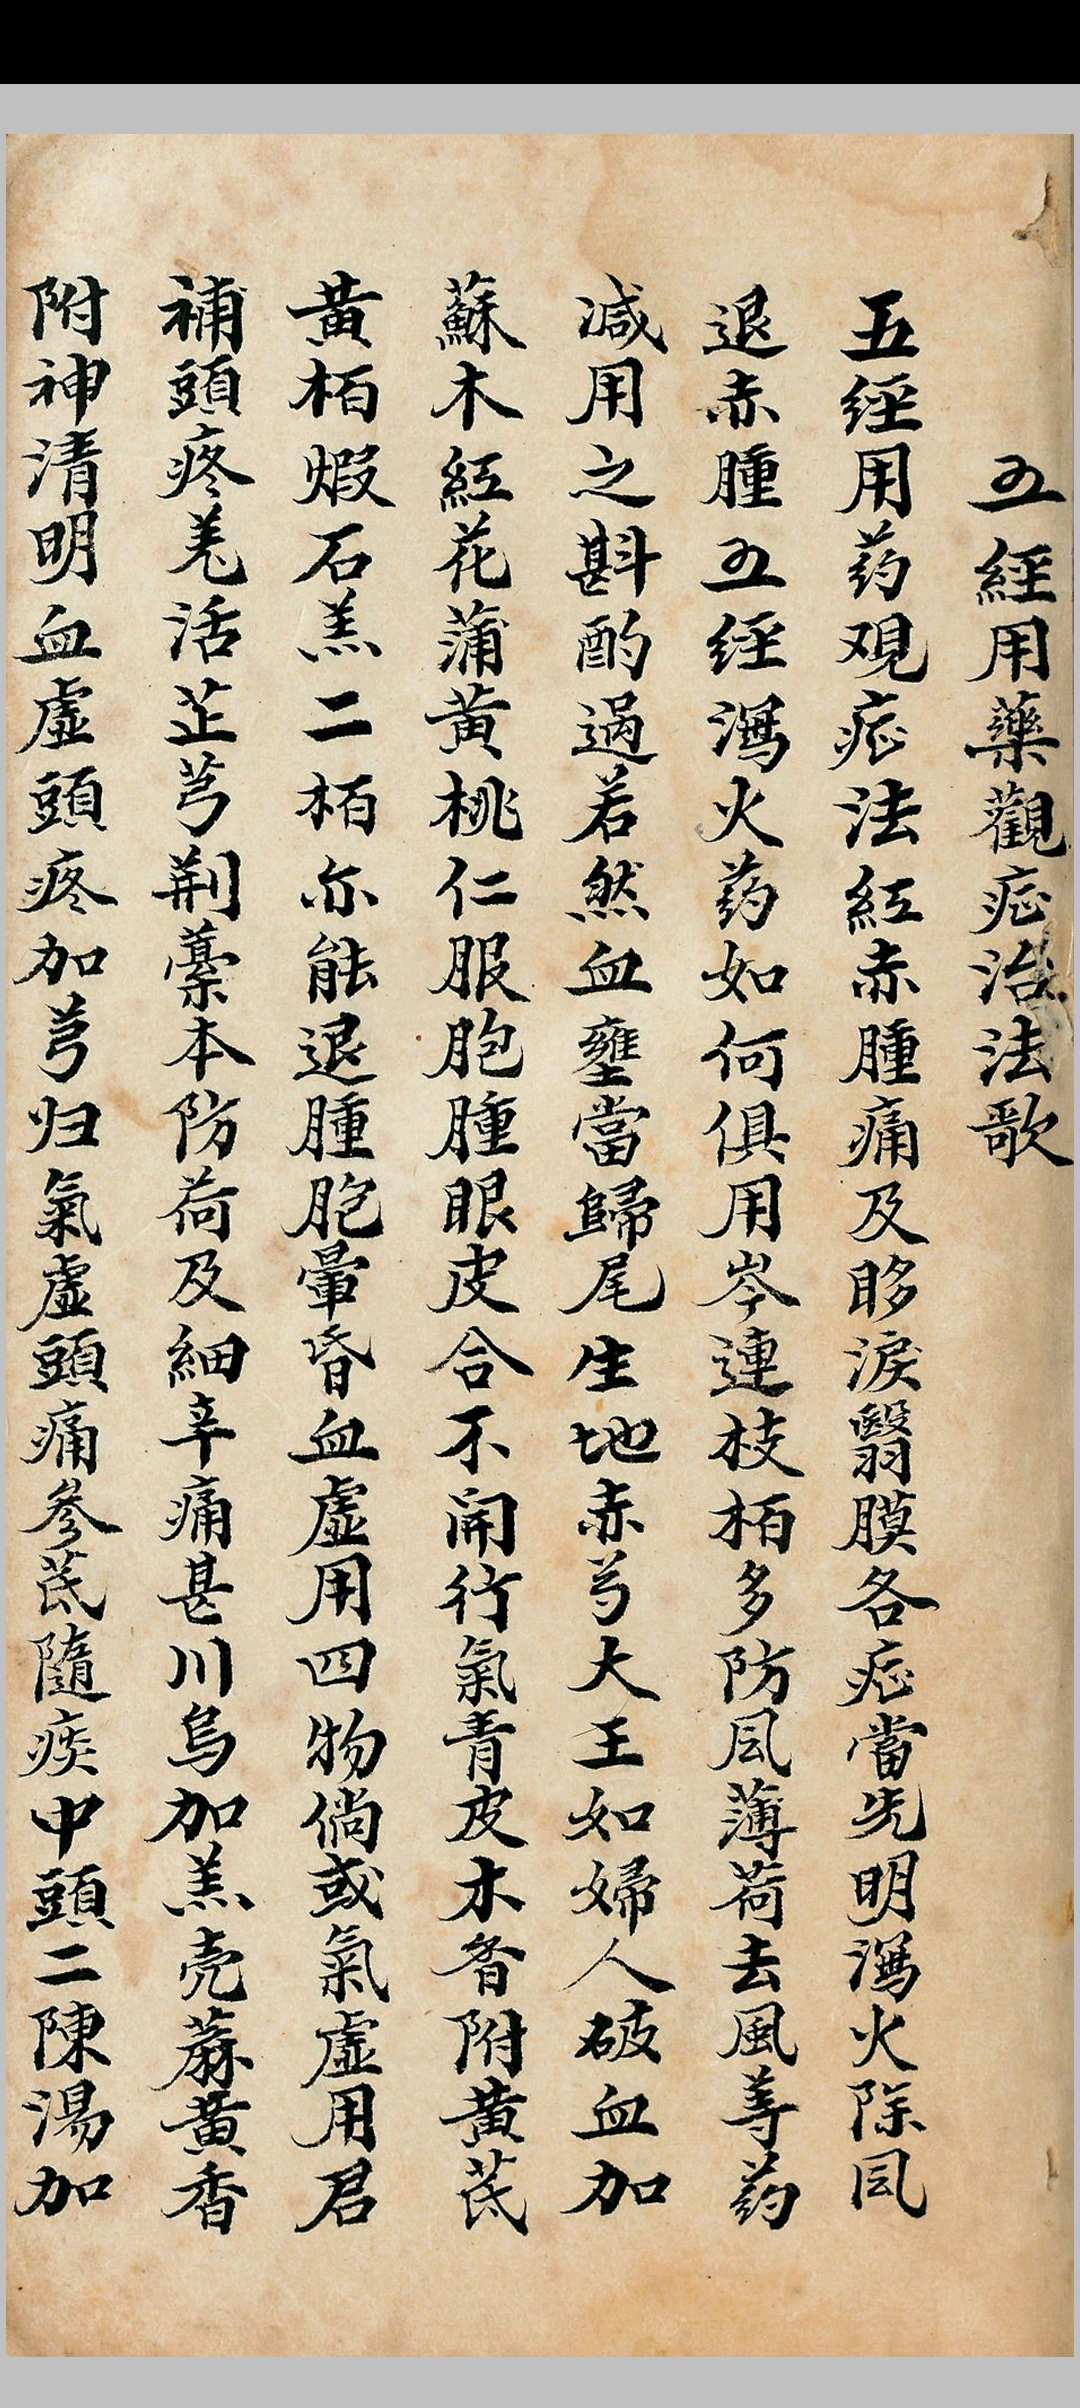 五經用藥觀症治法歌
五經用药观症法紅赤腫痛及眵淚翳膜各症當先明瀉火除风
退赤腫五經瀉火药如何俱用岑連枝栢多防风薄荷去風等药
減用之斟酌過若然血壅當歸尾生地赤芍大王如婦人破血加
蘇木紅花蒲黃桃仁服胞腫眼皮合不開行氣青皮木香附黃芪
黃栢煆石羔二栢亦能退腫胞暈昏血虛用四物倘或氣虛用君
補頭疼羌活芷芎荆藁本防荷及細辛痛甚川烏加羔壳蔴黃香
附神清明血虛頭疼加芎归氣虛頭痛參芪隨痰中頭二陳湯加